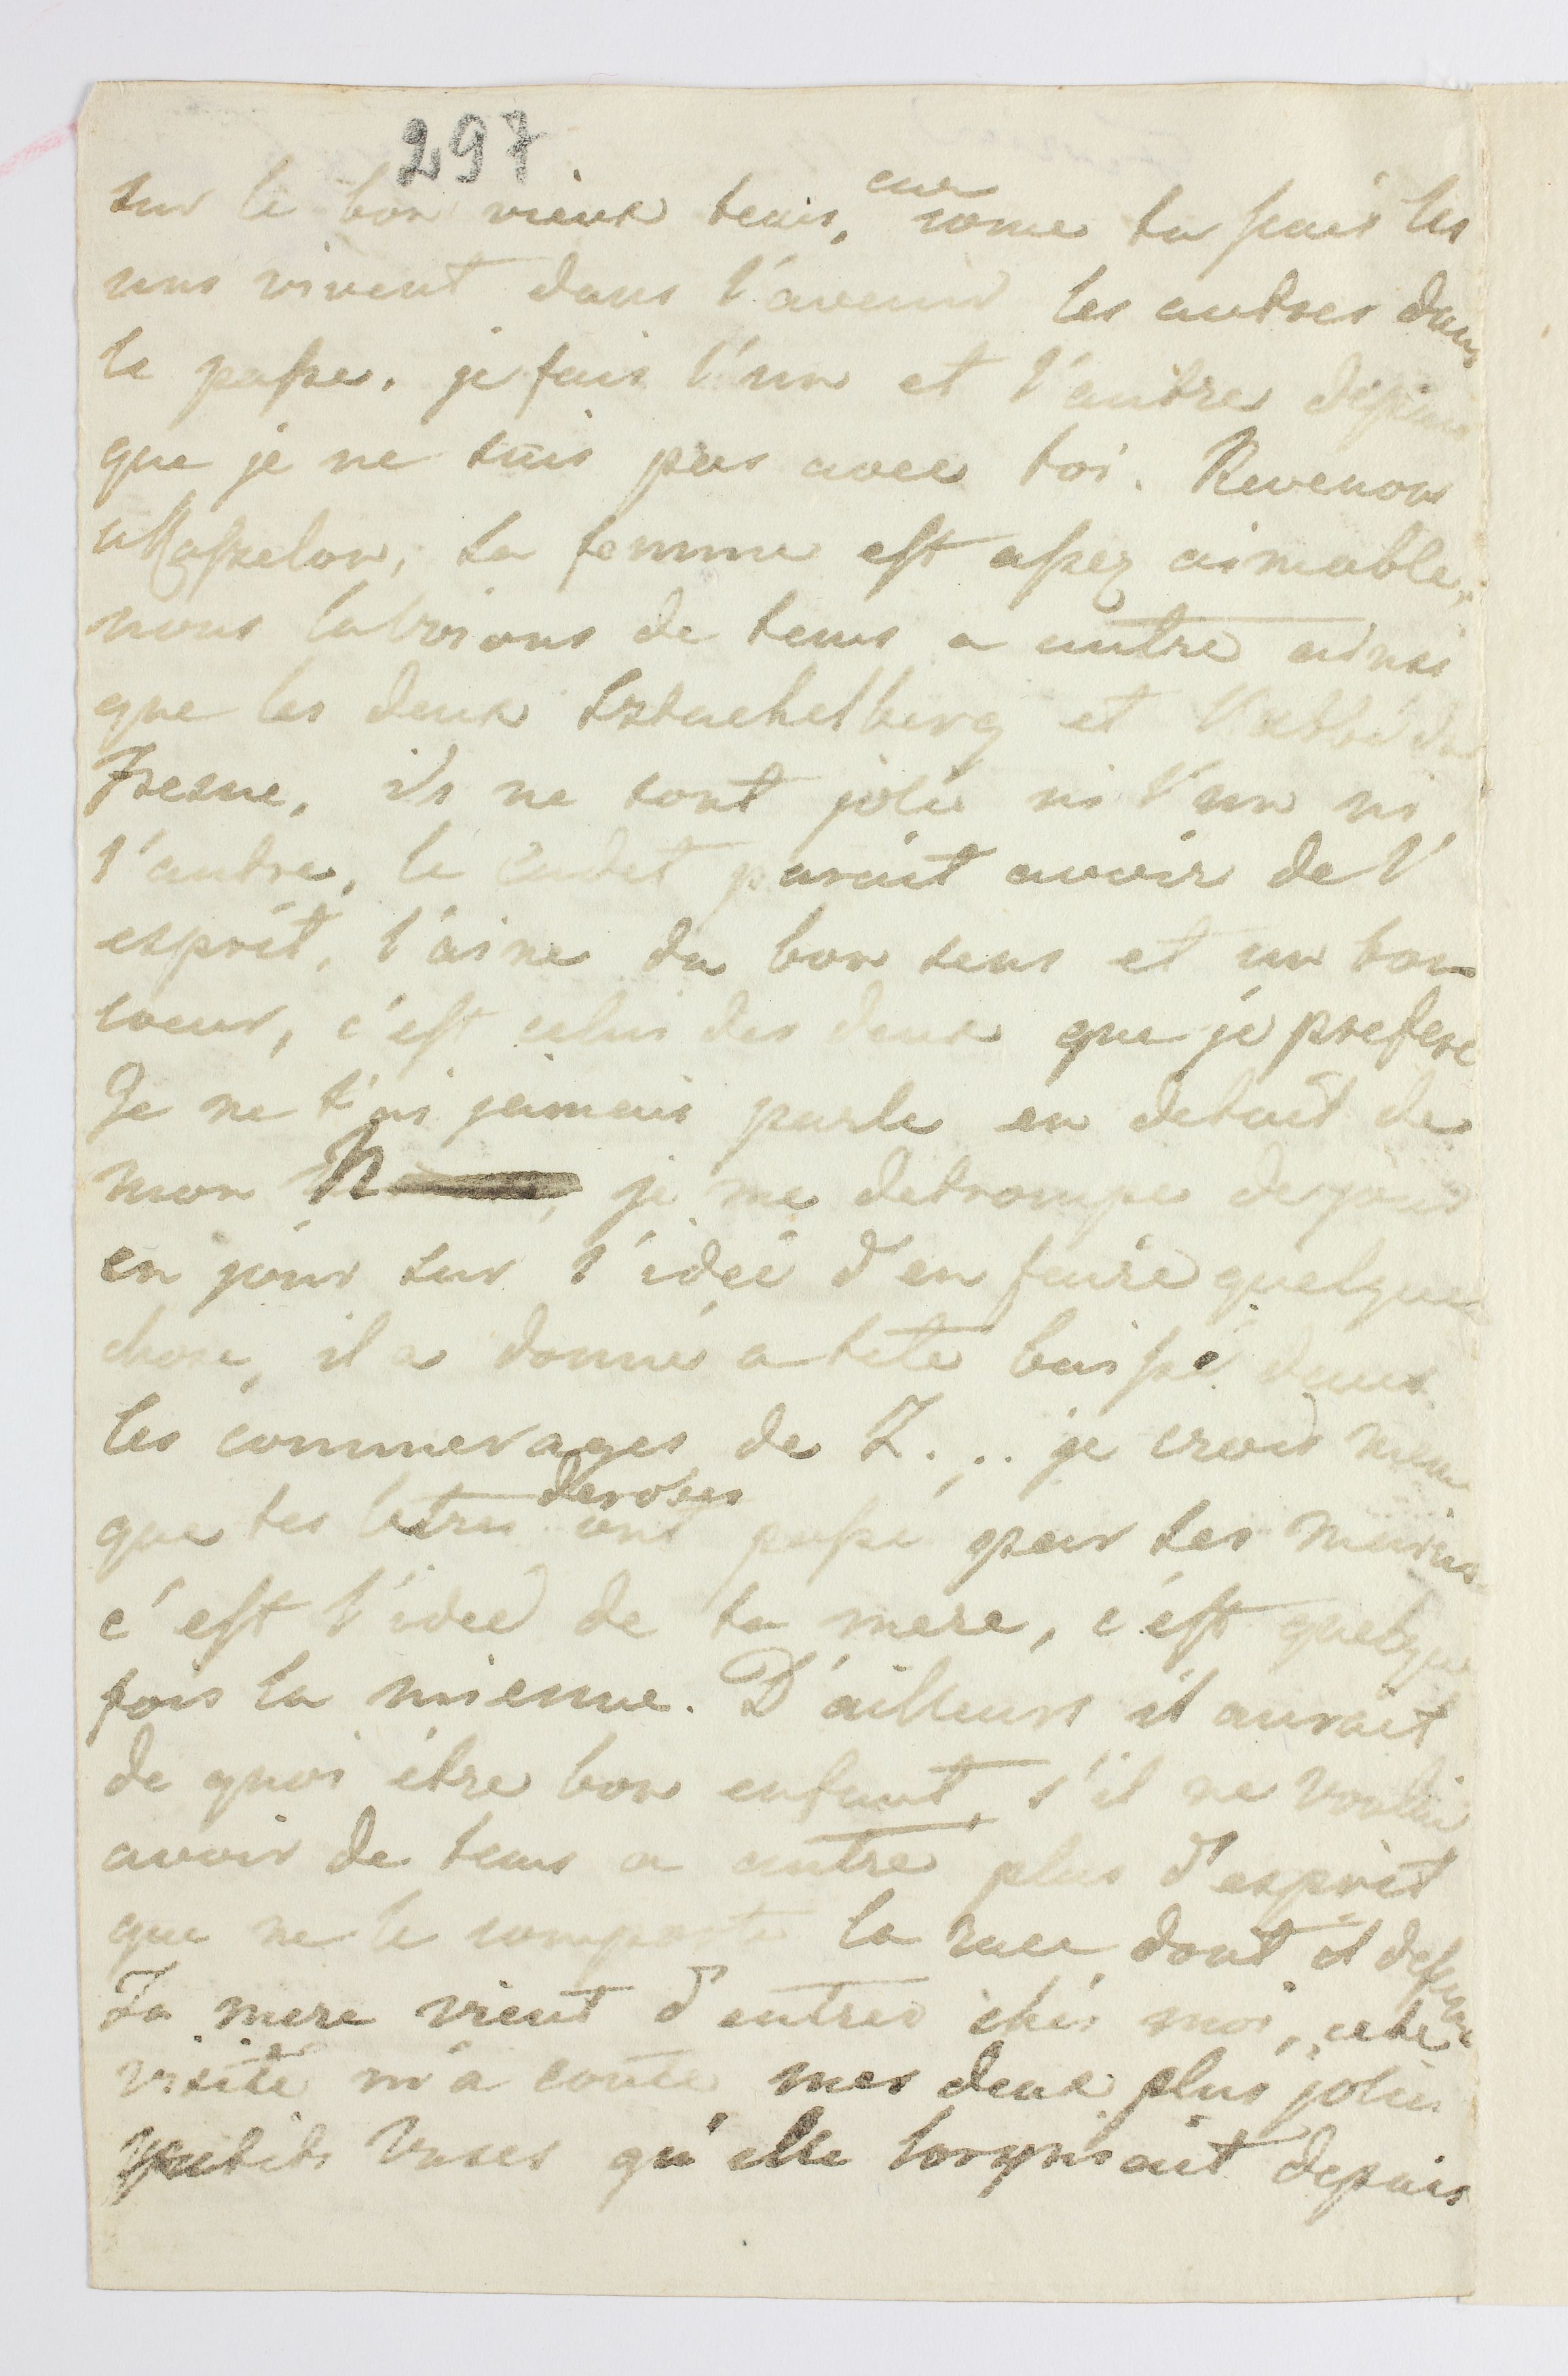 297
sur le bon vieux tems, car come tu sais les
uns vivent dans l'avenir les autres dans
le passe. je fais l'un et l'autre depuis
que je ne suis pas avec toi. Revenons
a Masselow, sa femme est assez aimable,
nous la voions de tems a autre ainsi
que les deux Sztachelberg et l'abbé du
Fresne, ils ne sont jolis ni l'un ni
l'autre, le cadet parait avoir de l'
esprit, l'aine du bon sens et un bon
coeur, c'est celui des deux que je prefere
Je ne t'ai jamais parle en detail de
mon N je me detrompe de jour
en jour sur l'idée d'en faire quelque
chose, il a donné a tete baissé dans
les commerages de Z... je crois meme
que tes letres derobes ont passé par ses mains
c'est l'idee de ta mere, c'est quelque
fois la mienne. D'ailleurs il aurait
de quoi être bon enfant, s'il ne voulait
avoir de tems a autre plus d'esprit
que ne le comporte la race dont il descend
Ta mere vient d'entrer chés moi, cete
visite m'a coute mes deux plus jolis
petits vases qu'elle lorgnait depuis